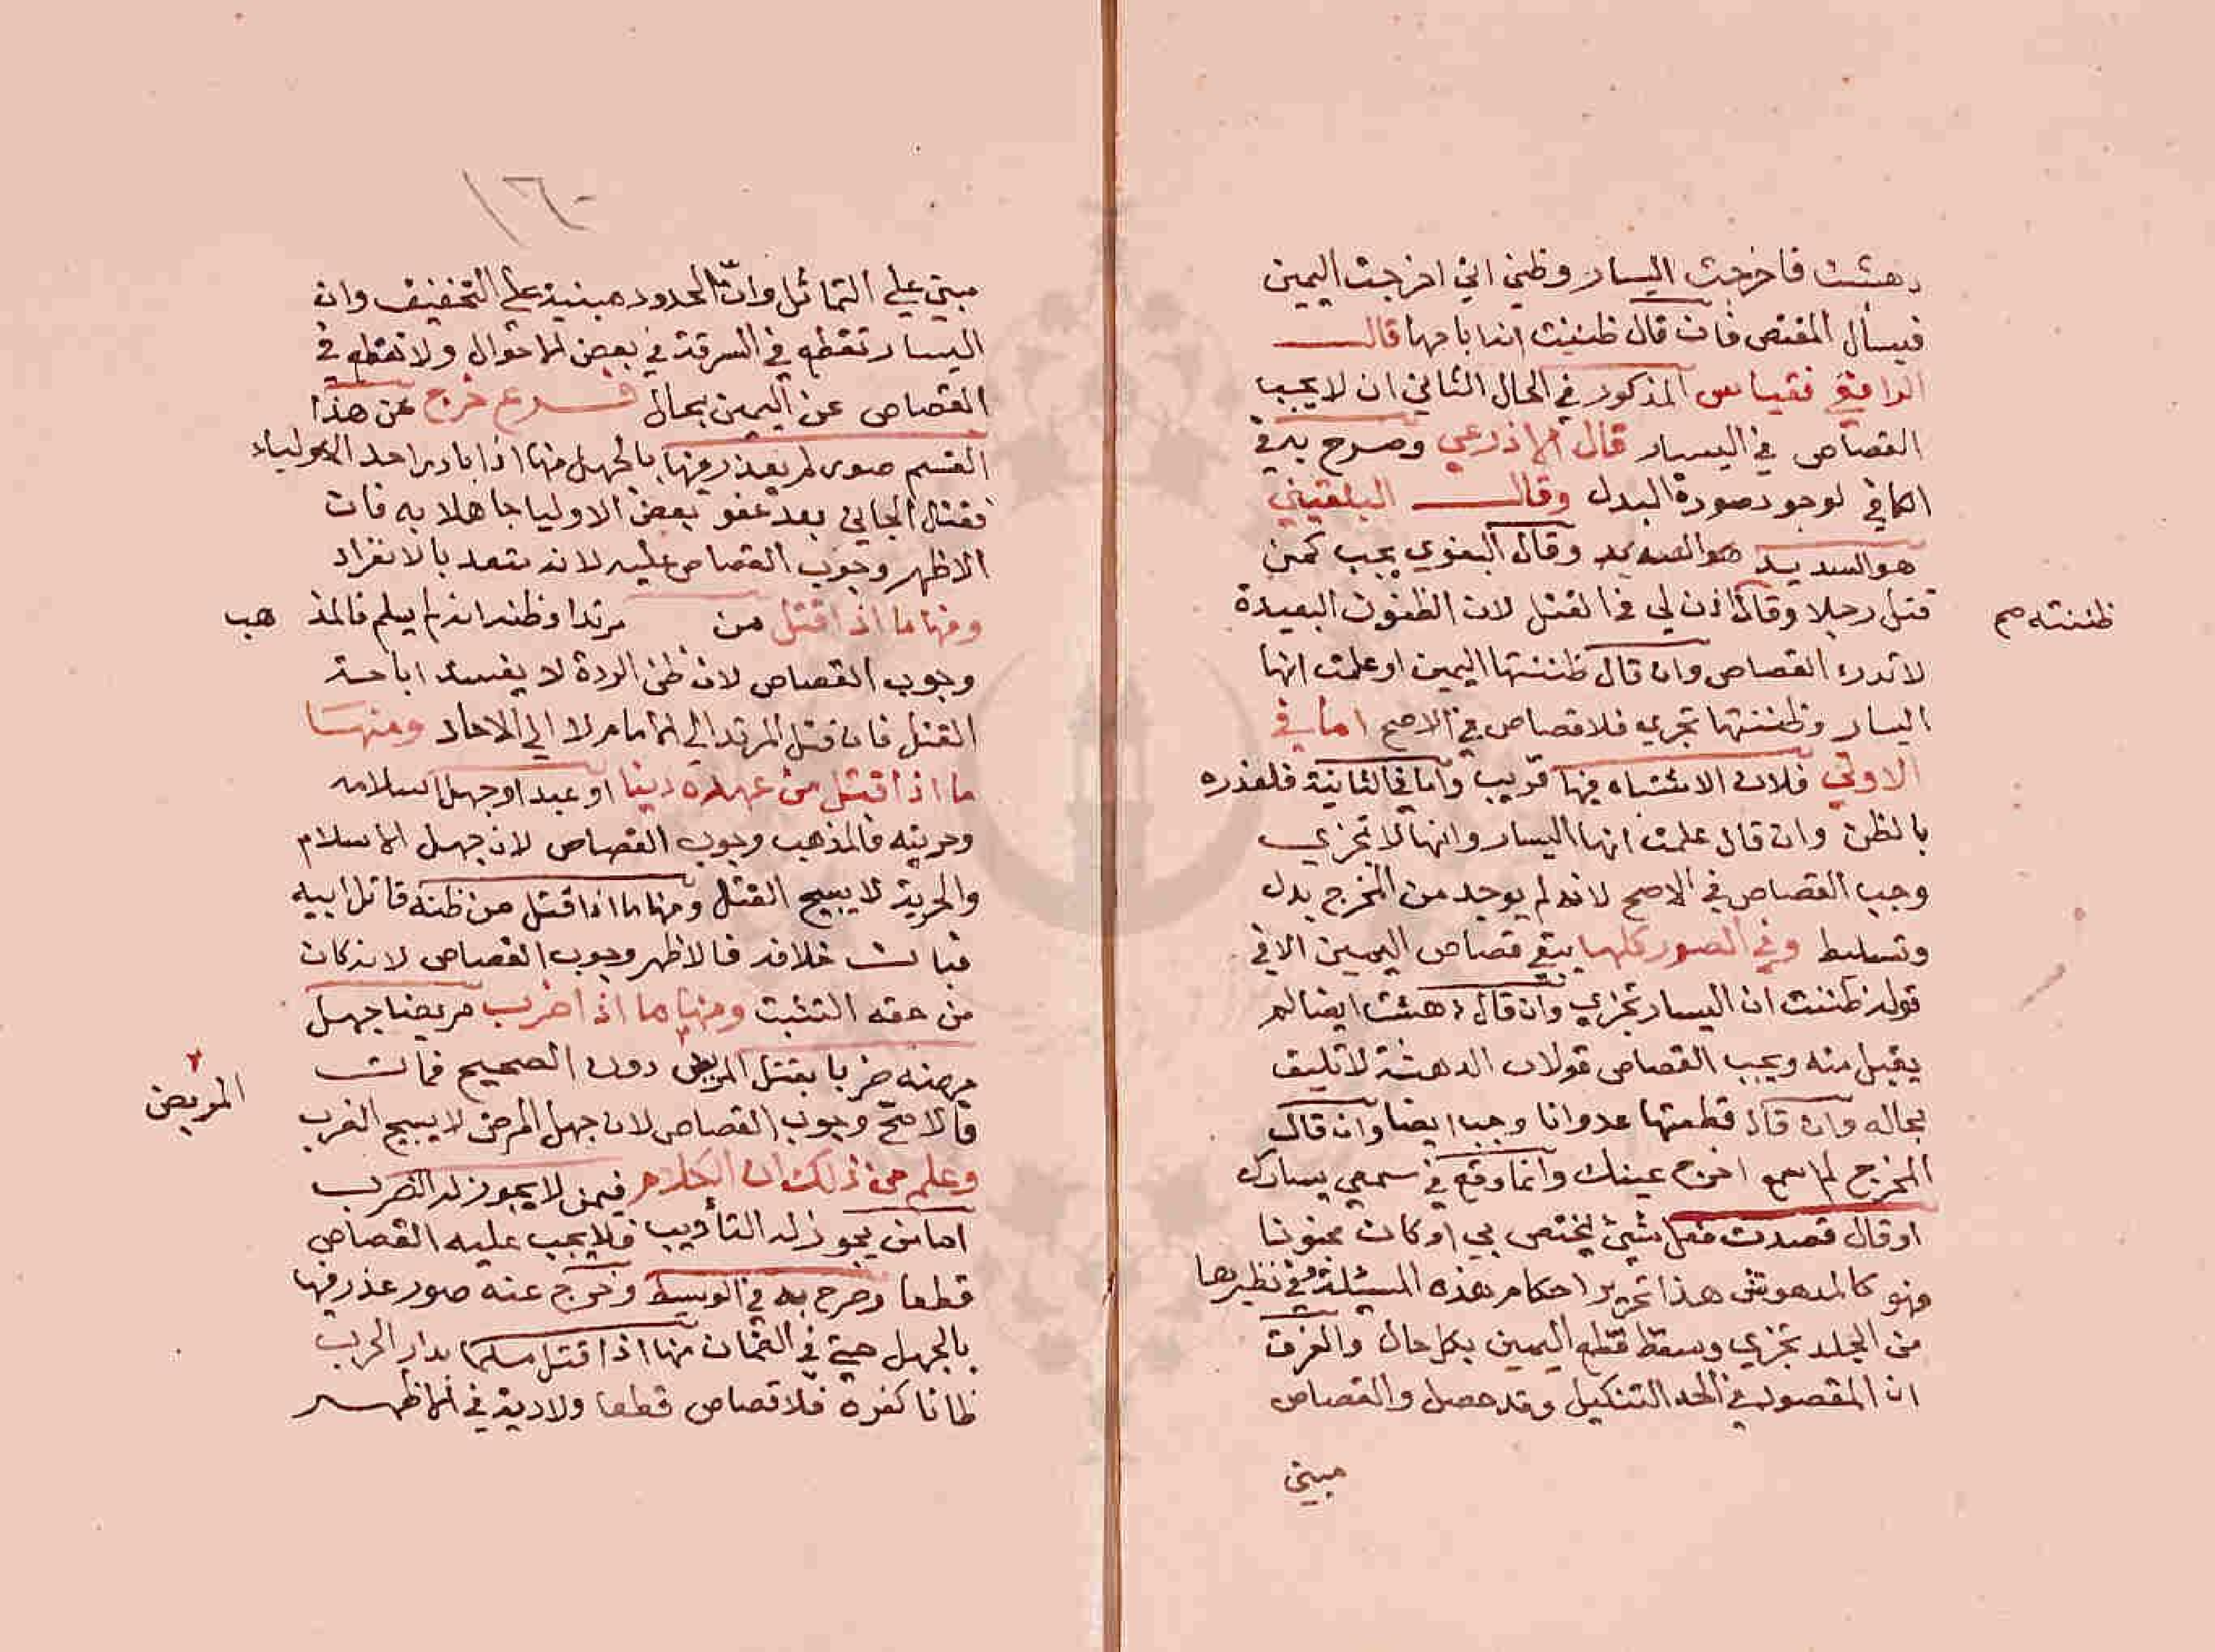 دهشت فاخرجت اليسار وظني اني اخرجت اليمين
فيسأل المقتص فان قال ظننت انه اباحها قال
الرافعي فقياس المذكور في الحال الثاني ان لا يجب
القصاص في اليسار قال الاذرعي وصرح به في
الكافي لوجود صورة البدل وقال البلقيني
هو السديد وقال البغوي يجب كمن
قتل رجلا وقال اذن لي في القتل لان الظنون البعيدة
ظننته صح
لا تدرء القصاص وان قال ظننتها اليمين او علمت انها
اليسار وظننتها تجزي فلا قصاص في الاصح اما في
الاولي فلان الاشتباه فيها قريب واما في الثانية فلعذره
بالظن وان قال علمت انها اليسار وانها لا تجزي
وجب القصاص في الاصح لانه لم يوجد من المخرج بدل
وتسليط وفي الصور كلها يبقي قصاص اليمين الا في
قوله ظننت ان اليسار تجزي وان قال دهشت ايضا لم
يقبل منه ويجب القصاص قولان الدهشة لا تليق
بحاله وان قال قطعتها عدوانا وجب ايضا وان قال
المخرج لم اسمع اخرج يمينك وانما وقع في سمعي يسارك
او قال قصدت فعل شيئ يختص بي او كان مجنونا
فهو كالمدهوش هذا تحرير احكام هذه المسئلة وفي نظيرها
من الجلد تجزي وسقط قطع اليمين بكل حال والفرق
ان المقصود في الحد التنكيل وقد حصل والقصاص
مبني
١٦٠
مبني علي التماثل وان الحدود مبنية علي التخفيف وان
اليسار تقطع في السرقة في بعض الاحوال ولا تقطع في
القصاص عن اليمين بحال فرع خرج عن هذا
القسم صور لم يعذر فيها بالجهل منها اذا بادر احد الاولياء
فقتل الجاني بعد عفو بعض الاوليا جاهلا به فان
الاظهر وجوب القصاص عليه لانه متعد بالانفراد
ومنها ما اذا قتل من مرتدا وظنه انه لم يسلم فالمذ هب
وجوب القصاص لان ظن الردة لا يفسد اباحة
القتل فان قتل المرتد الي الامام لا الي الاحاد ومنها
ما اذا قتل من عهده ذميا او عبدا وجهل اسلامه
وحريته فالمذهب وجوب القصاص لان جهل الاسلام
والحرية لا يبيح القتل ومنها ما اذا قتل من ظنه قاتل ابيه
فبانت خلافه فالاظهر وجوب القصاص لانه كان
من حقه التثبت ومنها ما اذا ضرب مريضا جهل
مرضه ضربا يقتل المريض دون الصحيح فمات
المريض
فالاصح وجوب القصاص لان جهل المرض لا يبيح الضرب
وعلم من ذلك ان الكلام فيمن لا يجوز له الضرب
اما من يجوز له التأديب فلا يجب عليه القصاص
قطعا وصرح به في الوسيط وخرج عنه صور عذر فيها
بالجهل حتي في الضمان منها اذا قتل مسلما بدار الحرب
ظانا كفره فلا قصاص قطعا ولا دية في الاظهر